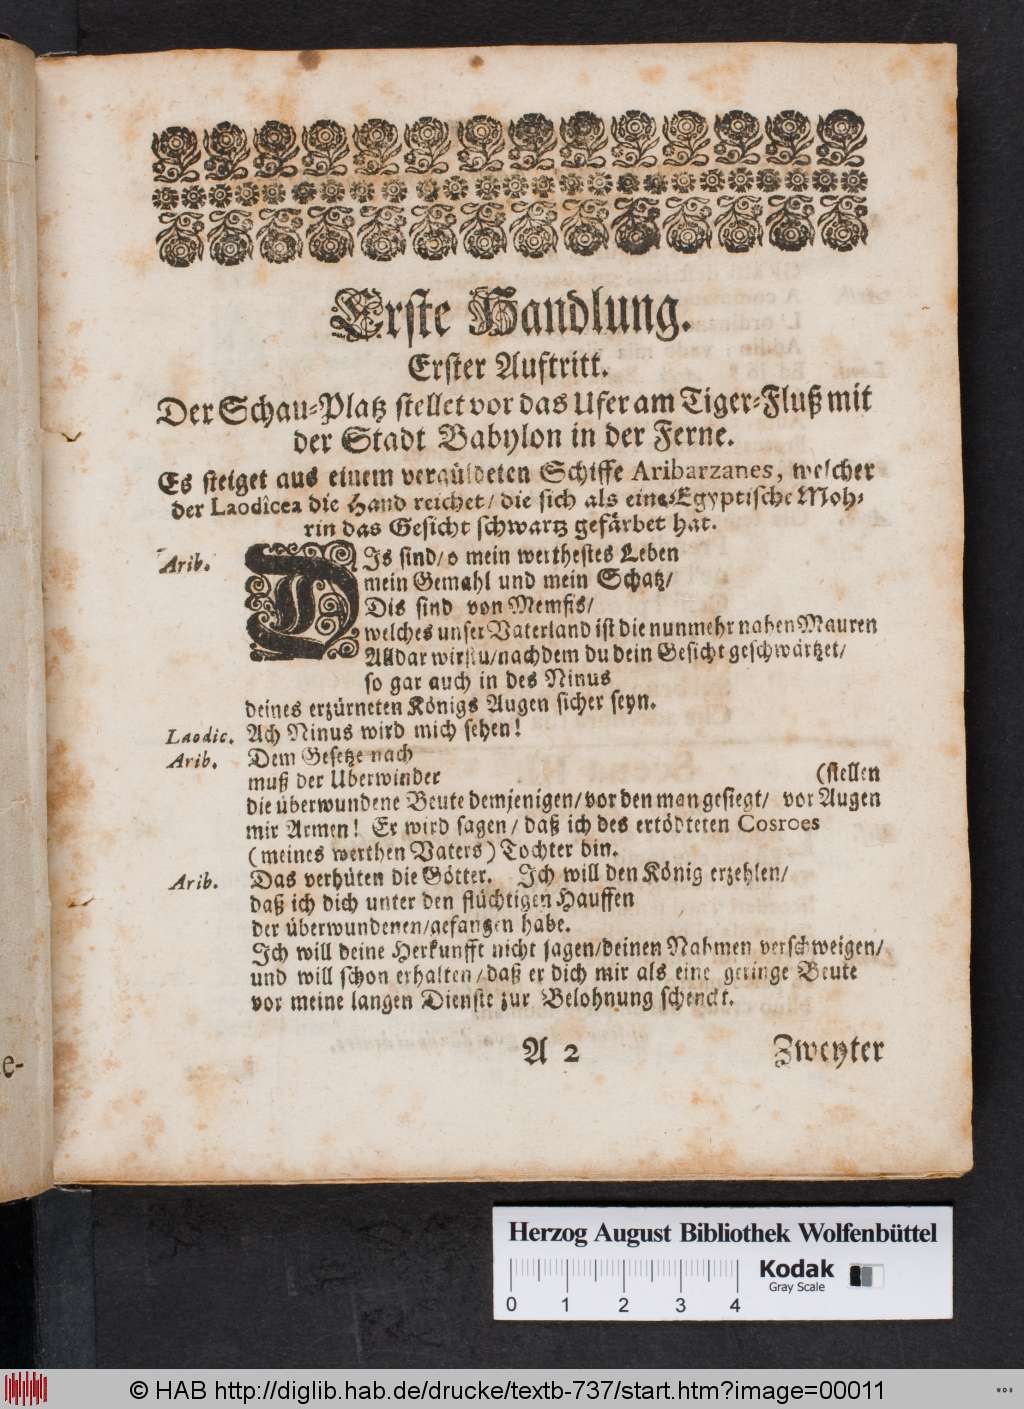 Erste Handlung.
Erster Auftritt.
Der Schau-Platz stellet vor das Ufer am Tiger-Fluß mit
der Stadt Babylon in der Ferne.
Es steiget aus einem vergüldeten Schiffe Aribarzanes, welcher
der Laodicea die Hand reichet/ die sich als eine Egyptische Moh-
rin das Gesicht schwartz gefärbet hat.
Arib. DIs sind/ o mein werthestes Leben
mein Gemahl und mein Schatz/
Dis sind von Memfis/
welches unser Vaterland ist die nunmehr nahen Mauren
Alldar wirstu/ nachdem du dein Gesicht geschwärtzet/
so gar auch in des Ninus
deines erzürneten Königs Augen sicher seyn.
Laodic. Ach Ninus wird mich sehen!
Arib. Dem Gesetze nach
muß der Uberwinder (stellen
die überwundene Beute demjenigen/ vor den man gesiegt/ vor Augen
mir Armen! Er wird sagen/ daß ich des ertödteten Cosroes
(meines werthen Vaters) Tochter bin.
Arib. Das verhüten die Götter. Ich will den König erzehlen/
daß ich dich unter den flüchtigen Hauffen
der überwundenen/ gefangen habe.
Ich will deine Herkunfft nicht sagen/ deinen Nahmen verschweigen/
und will schon erhalten/ daß er dich mir als eine geringe Beute
vor meine langen Dienste zur Belohnung schenckt.
A 2 Zweyter
e-
Herzog August Bibliothek Wolfenbüttel
0 1 2 3 4
Kodak
Gray Scale
© HAB http://diglib.hab.de/drucke/textb-737/start.htm?image=00011